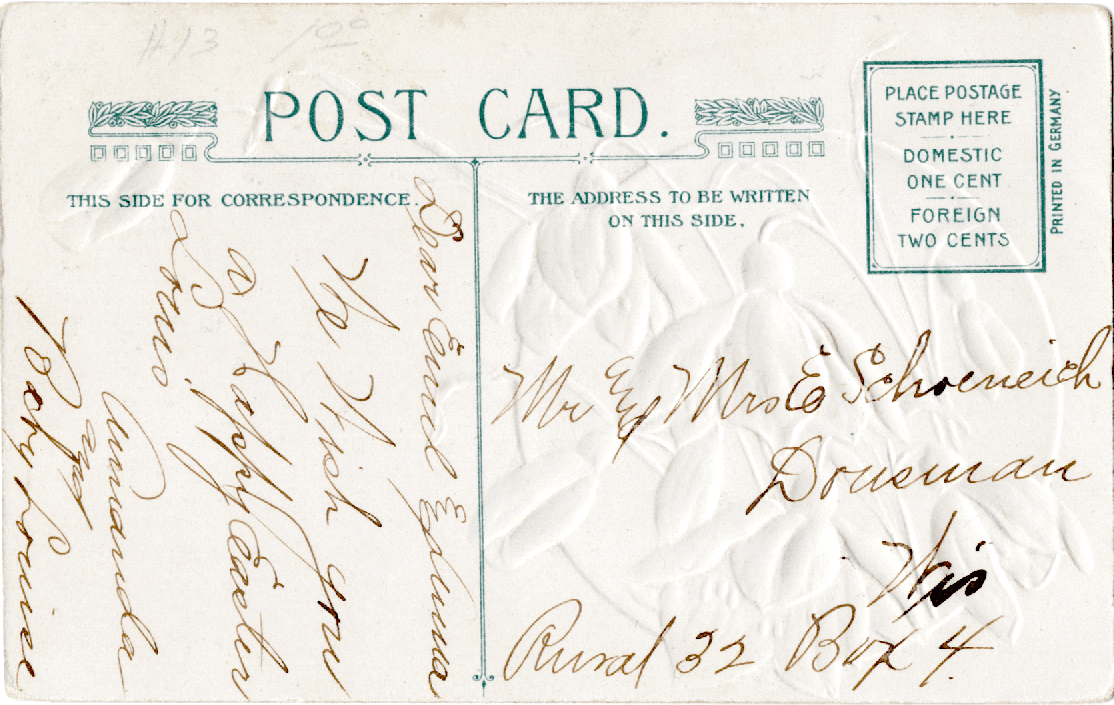 #13 100
POST CARD.
THIS SIDE FOR CORRESPONDENCE.
Dear Emiel & Emma
We Wish you
a Happy Easter
Louis
Amanda
and
Baby Louise
THE ADDRESS TO BE WRITTEN
ON THIS SIDE.
Mr & Mrs E Schoeneich
Dousman
Wis
Rural 32 Box 4
PLACE POSTAGE
STAMP HERE
DOMESTIC
ONE CENT
FOREIGN
TWO CENTS
PRINTED IN GERMANY